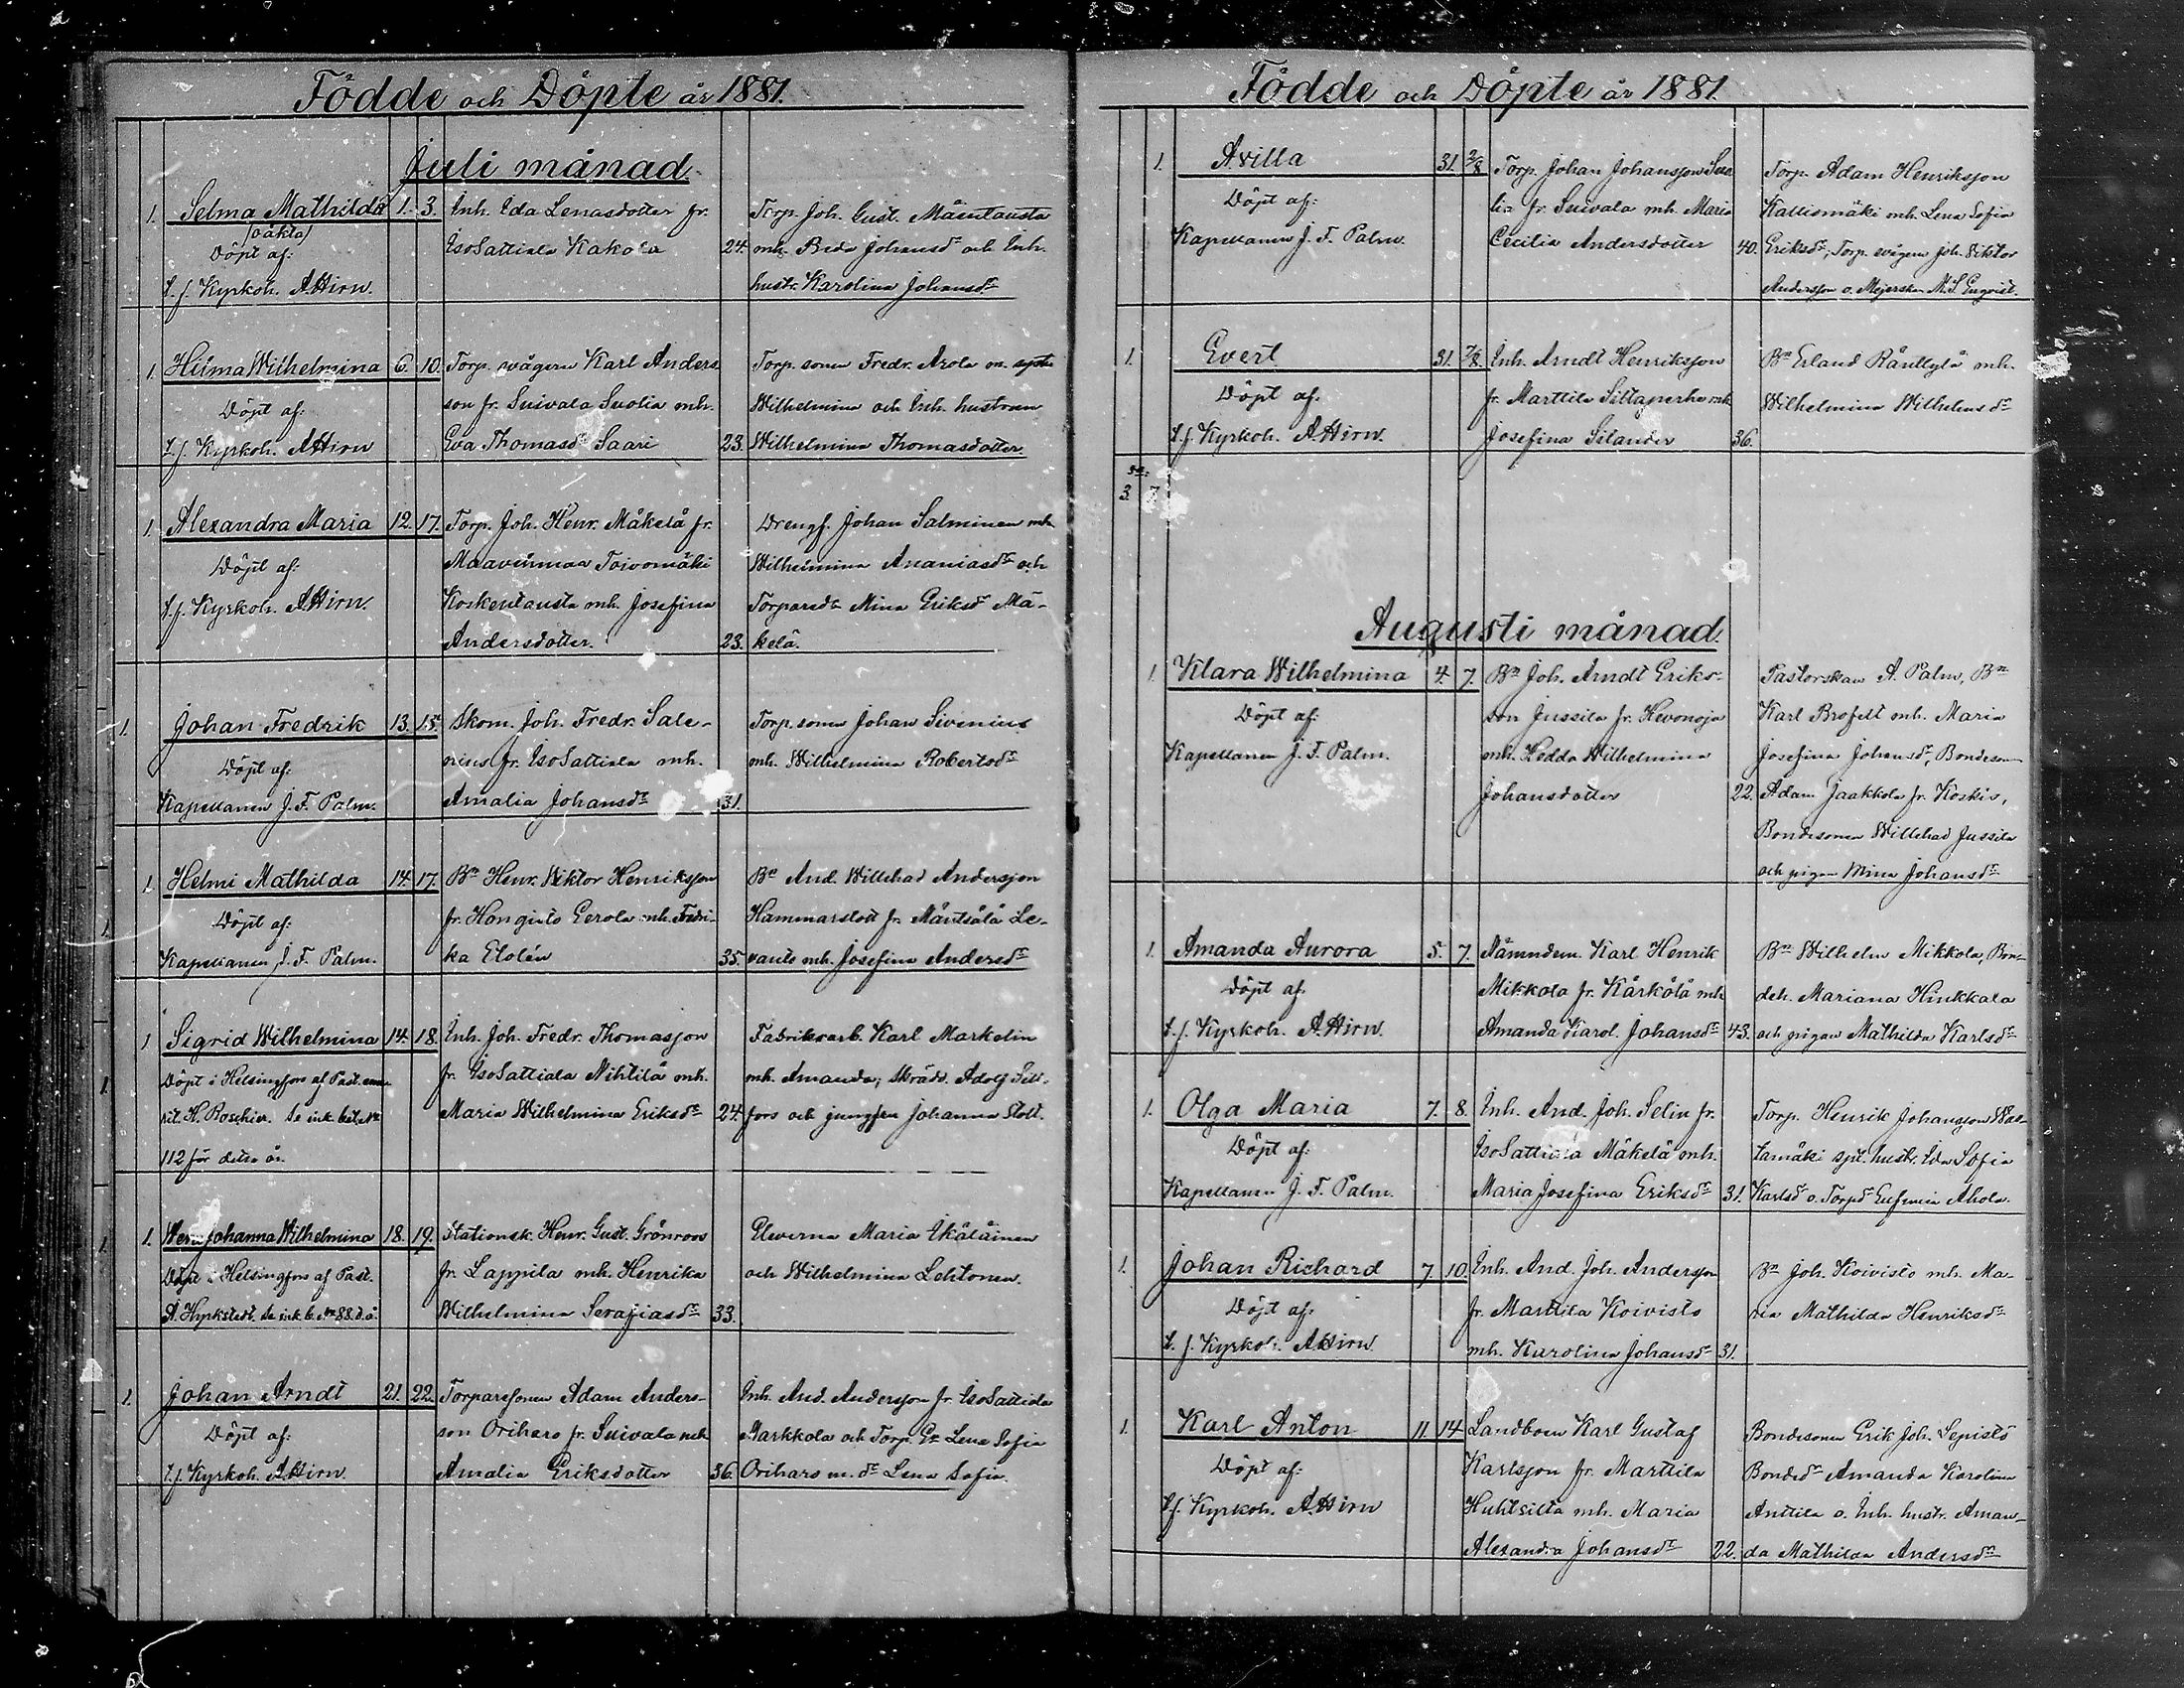 Födde och Döpte år 1881.
Juli månad.
1. Selma Mathilda 1. 3. Inh. Eda Lenasdotter fr. Torp. Joh. Gust. Mäentausta
(oäkta)
Döpt af: IsoSattiala Kakola 24. mh. Beda Johansdr och Inh.
t.f. Kyrkoh. A. Hirn. hustr. Karolina Johansdr
1. Hilma Wilhelmina 6. 10. Torp. svågern Karl Anders- Torp. sonen Fredr. Arola
Döpt af: son fr. Suivala Suolia mh. Wilhelmina och Inh. hustrun
t.f. Kyrkoh. A Hirn Eva Thomasdr Saari 23. Wilhelmina Thomasdotter.
1. Alexandra Maria 12. 17. Torp. Joh. Henr. Mäkelä fr. Drengf. Johan Salminen mh.
Döpt af: Maavinmaa Toivomäki Wilhelmina Ananiasdr och
t.f. Kyrkoh. A Hirn. Koskentausta mh. Josefina Torparedr Mina Eriksdr Mä-
Andersdotter. 23. kelä.
1. Johan Fredrik 13. 15. Skom. Joh. Fredr. Sale- Torp. sonen Johan Sivenius
Döpt af: nius fr. IsoSattiala mh. mh. Wilhelmina Robertsdr
Kapellanen J. F. Palm. Amalia Johansdr 31.
1. Helmi Mathilda 14. 17. Bn Henr. Wiktor Henriksson Bn And. Willehad Andersson
Döpt af: fr. Hongisto Eerola mh. Fredri- Hammarstott fr. Mäntsälä Le-
Kapellanen J. F. Palm. ka Elolén 35. vanto mh. Josefina Andersdr
1 Sigrid Wilhelmina 14. 18. Inh. Joh. Fredr. Thomasson Fabriksarb. Karl Markelin
Döpt i Helsingfors af Past. fr. IsoSattiala Nihtilä mh. mh. Amanda; Skrädd. Adolf Sell-
H. Roschier. Se ink. bet. No Maria Wilhelmina Eriksdr 24. fors och jungfru Johanna Stolt.
112 för detta år.
1. Johanna Wilhelmina 18. 19. Stationsk. Henr. Gust. Grönroos Eleverna Maria Ikäläinen
Döpt i Helsingfors af Past. fr. Lappila mh. Henrika och Wilhelmina Lehtonen.
A. Hyrkstedt. Se ink. b. No 88. d.å. Wilhelmina Serafiasdr 33.
1. Johan Arndt 21. 22. Torparesonen Adam Anders- Inh. And. Andersson fr. IsoSattiala
Döpt af: son Orihara fr. Suivala mh. Markkola och Torp. Lena Sofia
t.f. Kyrkoh. A. Hirn. Amalia Eriksdotter 36. Orihara m. dr Lena Sofia.
Födde och Döpte år 1881.
1. Axilla 31. 2/8 Torp. Johan Johansson Suo- Torp. Adam Henriksson
Döpt af: lia fr. Suivala mh. Maria Kalliomäki mh. Lena Sofia
Kapellanen J. F. Palm. Cecilia Andersdotter 40. Eriksdr, Torp. svågern Joh. Viktor
Andersson o. Mejerskan M. S. Enqvist.
1. Evert 31. 7/8. Inh. Arndt Henriksson Bn Erland Räntlylä mh.
Döpt af. fr. Marttila Siltaperha mh. Wilhelmina Wilhelmsdr
t.f. Kyrkoh. A. Hirn. Josefina Silander 36.
3. 7.
Augusti månad.
1. Klara Wilhelmina 4. 7. Bn Joh. Arndt Eriks- Pastorskan A. Palm, Bn
Döpt af: son Jussila fr. Hevonoja Karl Brofelt mh. Maria
Kapellanen J. F. Palm. mh. Hedda Wilhelmina Josefina Johansdr, Bondeson
Johansdotter 22. Adam Jaakkola fr. Koskis,
Bondesonen Willehad Jussila
och pigan Mina Johansdr
1. Amanda Aurora 5. 7. Nämndem. Karl Henrik Bn Wilhelm Mikkola, Bon-
Döpt af. Mikkola fr. Kärkölä mh. deh. Mariana Hinkkala
t.f. Kyrkoh. A. Hirn. Amanda Karol. Johansdr 43. och pigan Mathilda Karlsdr
1. Olga Maria 7. 8. Inh. And. Joh. Selin fr. Torp. Henrik Johansson Wal-
Döpt af: IsoSattiala Mäkelä mh. tamäki spt. hustr. Ida Sofia
Kapellanen J. F. Palm. Maria Josefina Eriksdr 31. Karlsdr o. Torpdr Eufemia Ahola.
1. Johan Richard 7. 10. Inh. And. Joh. Andersson Bn Joh. Koivisto mh. Ma-
Döpt af: fr. Marttila Koivisto ria Mathilda Henriksdr
t.f. Kyrkoh. A Hirn. mh. Karolina Johansdr 31.
1. Karl Anton 11. 14 Landboen Karl Gustaf Bondesonen Erik Joh. Sepistö
Döpt af: Karlsson fr. Marttila Bondedr Amanda Karolina
t.f. Kyrkoh. A. Hirn Huhtsilta mh. Maria Anttila o. Inh. hustr. Aman-
Alexandra Johansdr 22. da Mathilda Andersdr